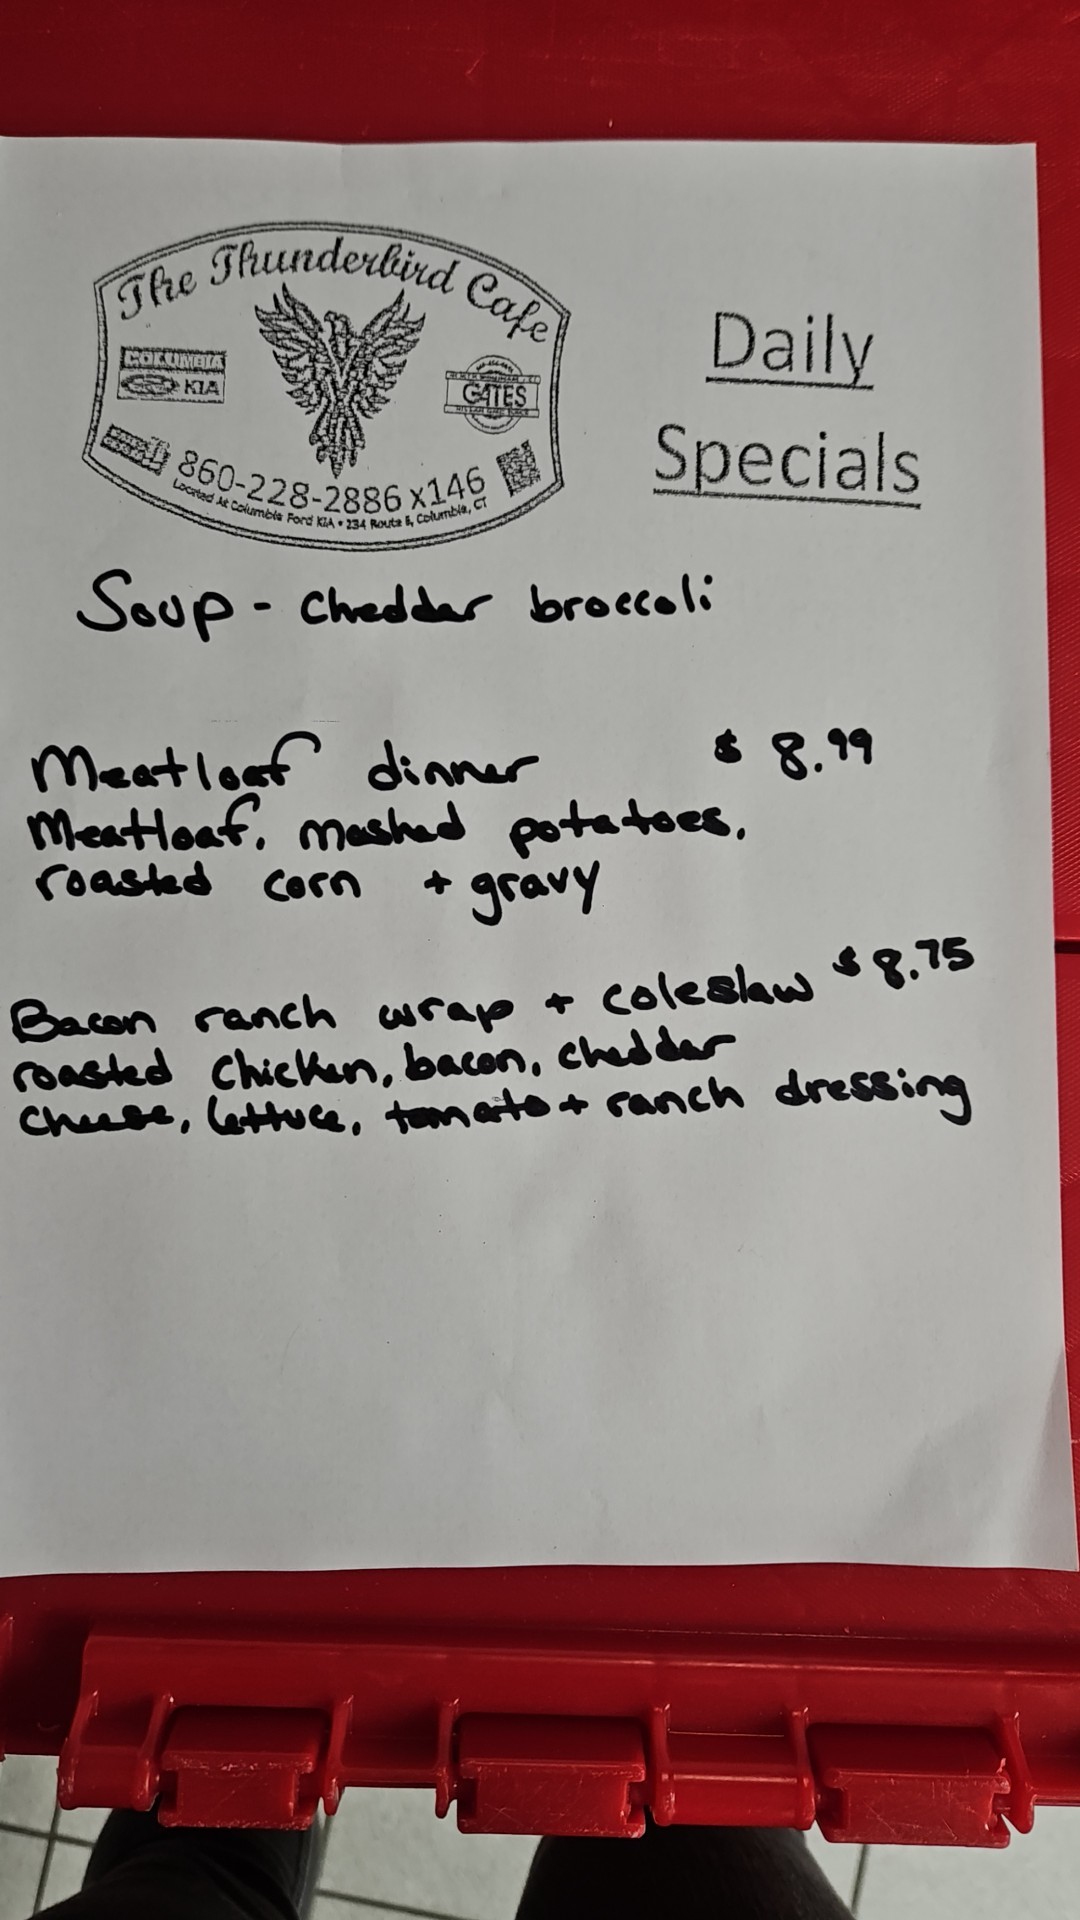 The Thunderbird Cafe
COLUMBIA
Ford KIA
GATES
860-228-2886 x146
Located At Columbia Ford KIA • 234 Route 6, Columbia, CT
Daily
Specials
Soup - Cheddar broccoli
Meatloaf dinner $ 8.99
Meatloaf, mashed potatoes,
roasted corn + gravy
Bacon ranch wrap + coleslaw $ 8.75
roasted chicken, bacon, cheddar
cheese, lettuce, tomato + ranch dressing